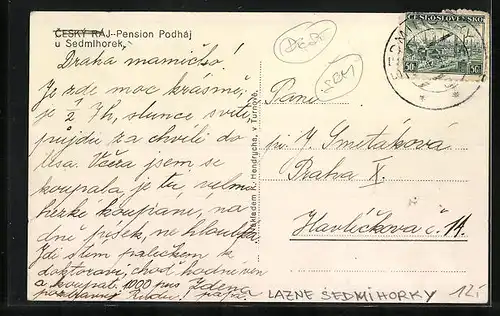 ČESKÝ RÁJ--Pension Podháj
u Sedmihorek,
Draha mamičko!
Je zde moc krásně,
je ½ 7h, slunce svítí,
půjdu za chvíli do
lesa. Včera jsem se
koupala, je tu velmi
hezké koupání, na
dně písek, ne hluboko.
Jdi s tím palečkem k
doktorovi, choď hodně ven
a koupat. 1000 pus Zdena
pozdravuj papá.
Nákladem K. Hendrycha, v Turnově.
ČESKOSLOVENSKO
50 50
Paní
pí. Smetáková
Praha X.
Havlíčkova č. 14.
LAZNE SEDMIHORKY
12,-